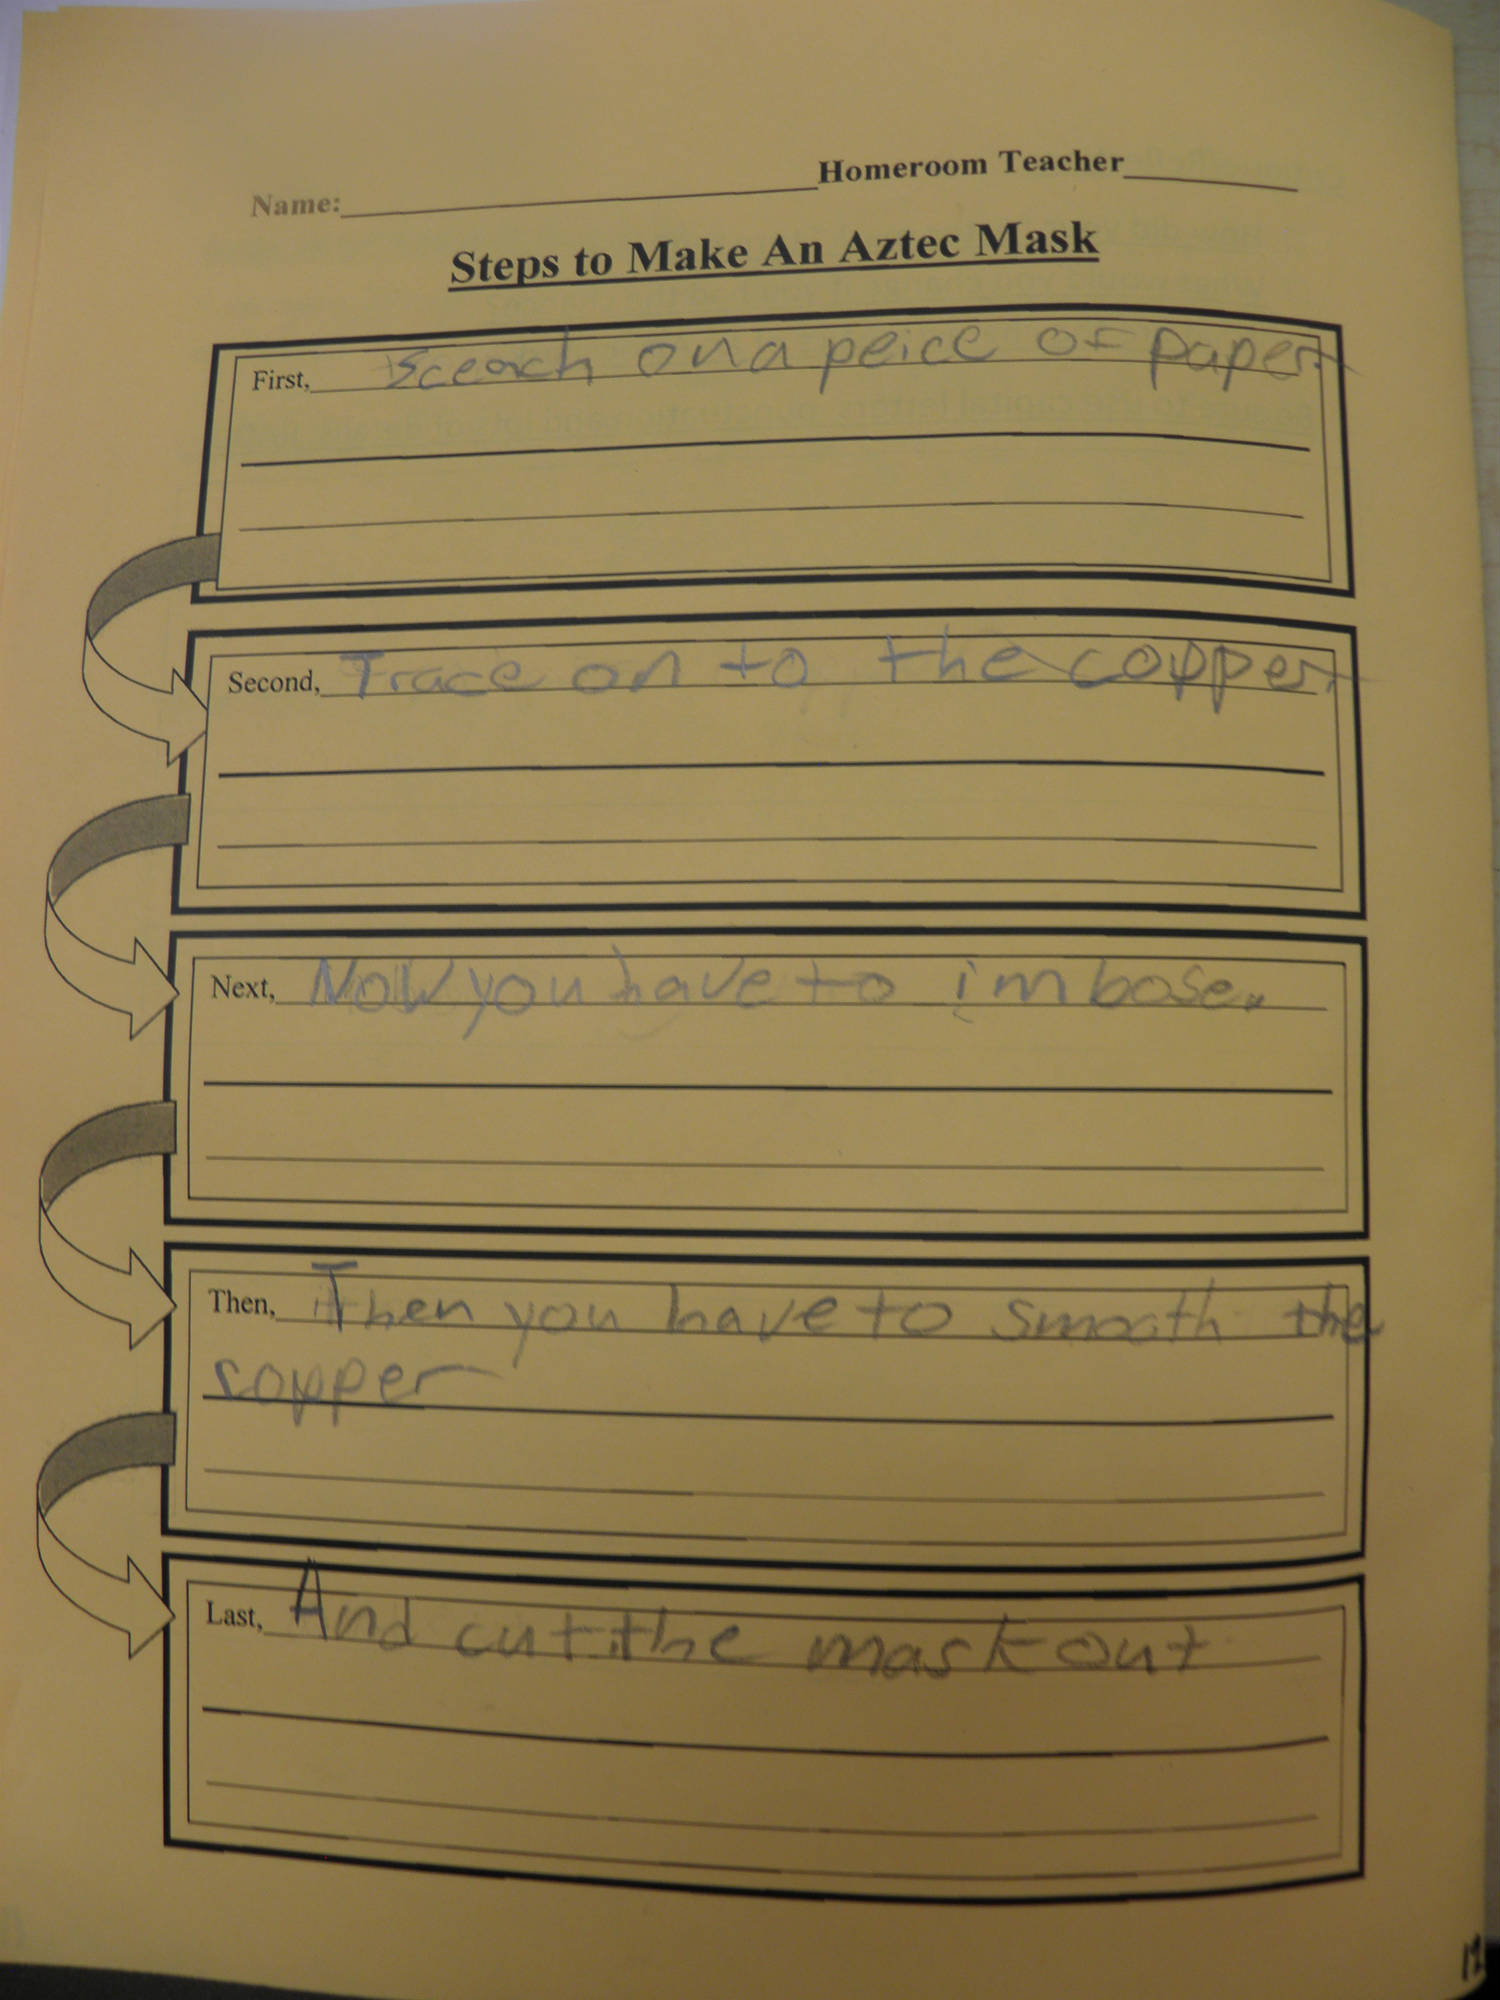 Name:____________________Homeroom Teacher__________
Steps to Make An Aztec Mask
First, Sceach on a peice of paper.
Second, Trace on to the copper.
Next, Now you have to imbose.
Then, Then you have to smooth the
copper
Last, And cut the mask out
12